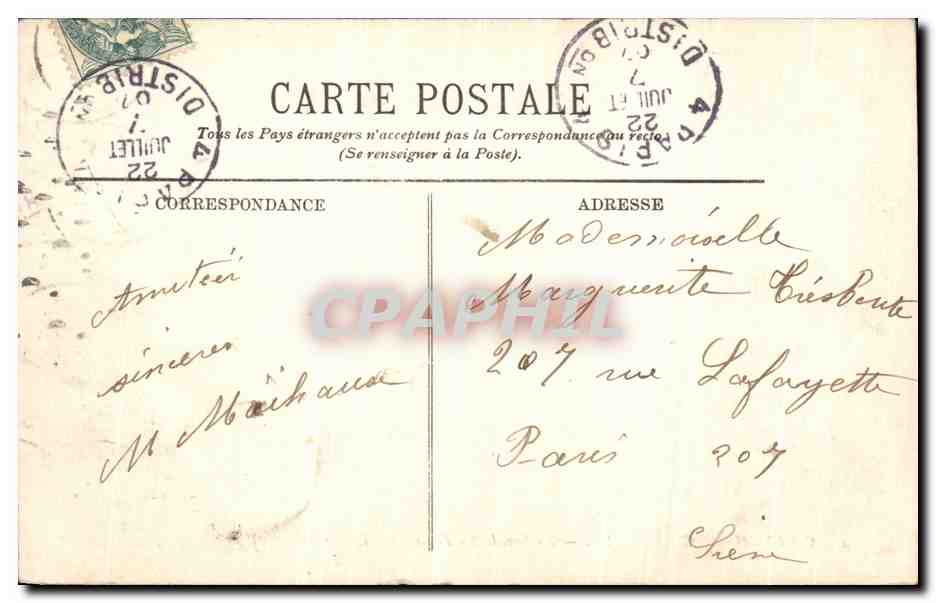 CARTE POSTALE
Tous les Pays étrangers n'acceptent pas la Correspondance au recto
(Se renseigner à la Poste).
DISTRIB ON
07
7
JUILLET
22
4 PARIS
DISTRIB ON
07
7
JUILLET
22
4 PARIS
CORRESPONDANCE
Amitiés
sincères
M
ADRESSE
Mademoiselle
Marguerite
207 rue Lafayette
Paris 207
CPAPHIL